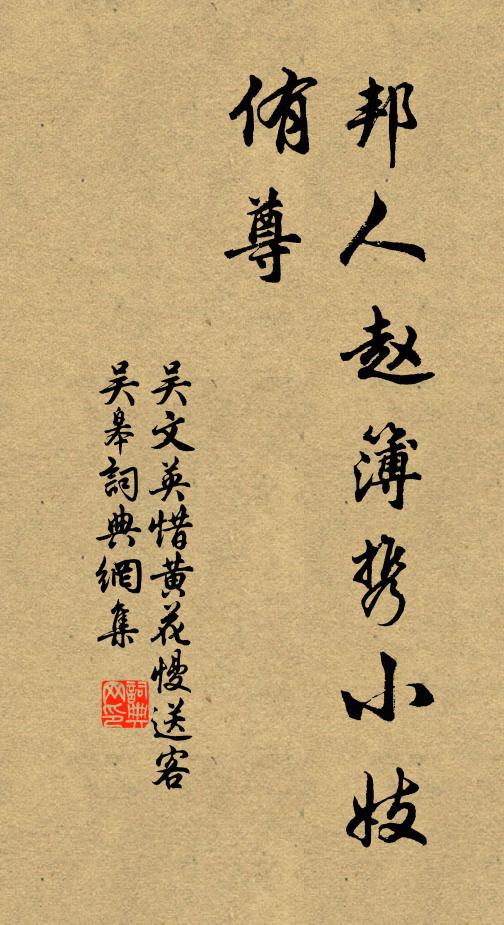 邦人赵簿携小妓
侑尊
吴文英惜黄花慢送客
吴皋詞典網集
詞典网印